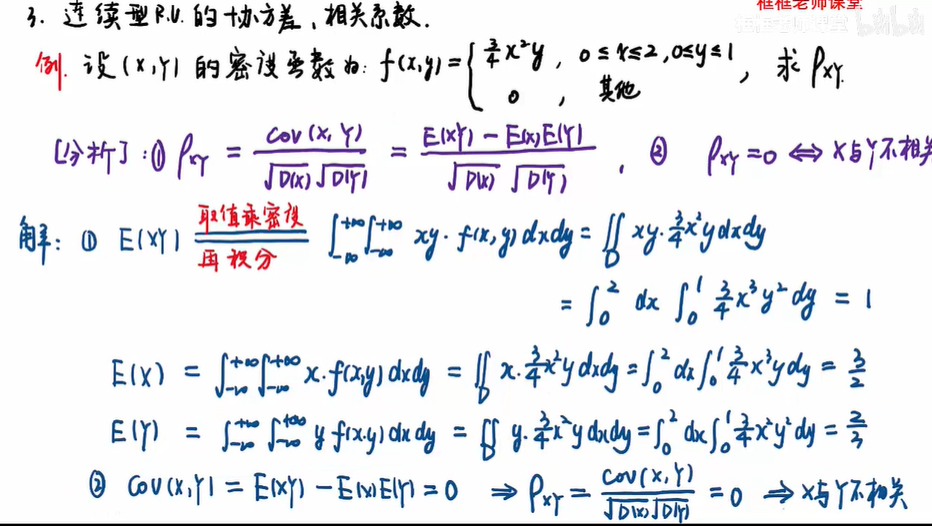 框框老师课堂
3. 连续型R.V.的协方差、相关系数.
例. 设(X,Y)的密度函数为: f(x,y)={ 3/4 x²y , 0≤x≤2, 0≤y≤1 ; 0 , 其他 , 求 ρ_XY.
[分析]: ① ρ_XY = COV(X,Y)/(√D(X) √D(Y)) = (E(XY) - E(X)E(Y))/(√D(X) √D(Y)) , ② ρ_XY = 0 ⇔ X与Y不相关
解: ① E(XY) 取值乘密度 再积分 = ∫_{-∞}^{+∞}∫_{-∞}^{+∞} xy·f(x,y)dxdy = ∬_D xy·3/4 x²y dxdy
= ∫_0^2 dx ∫_0^1 3/4 x³y² dy = 1
E(X) = ∫_{-∞}^{+∞}∫_{-∞}^{+∞} x·f(x,y)dxdy = ∬_D x·3/4 x²y dxdy = ∫_0^2 dx ∫_0^1 3/4 x³y dy = 3/2
E(Y) = ∫_{-∞}^{+∞}∫_{-∞}^{+∞} y f(x,y)dxdy = ∬_D y·3/4 x²y dxdy = ∫_0^2 dx ∫_0^1 3/4 x²y² dy = 2/3
② COV(X,Y) = E(XY) - E(X)E(Y) = 0 ⇒ ρ_XY = COV(X,Y)/(√D(X)√D(Y)) = 0 ⇒ X与Y不相关